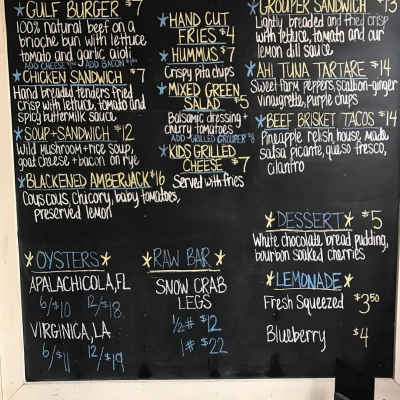 GULF BURGER $7
100% natural beef on a
brioche bun with lettuce
tomato and garlic aioli
ADD CHEESE ADD BACON
CHICKEN SANDWICH $7
Hand breaded tenders fried
crisp with lettuce, tomato and
spicy buttermilk sauce
SOUP+SANDWICH $12
Wild mushroom+rice soup,
goat cheese+bacon on rye
BLACKENED AMBERJACK $16
Couscous, chicory, baby tomatoes,
preserved lemon
HAND CUT
FRIES $4
HUMMUS $7
Crispy pita chips
MIXED GREEN
SALAD $5
Balsamic dressing +
cherry tomatoes
ADD GRILLED GROUPER $8
KIDS GRILLED
CHEESE $7
Served with fries
GROUPER SANDWICH $13
Lightly breaded and fried crisp
with lettuce, tomato and our
lemon dill sauce
AHI TUNA TARTARE $14
Sweet farm peppers, scallion-ginger
vinaigrette, purple chips
BEEF BRISKET TACOS $14
Pineapple relish, house made
salsa picante, queso fresco,
cilantro
DESSERT $5
White chocolate bread pudding,
bourbon soaked cherries
OYSTERS
APALACHICOLA, FL
6/$10 12/$18
VIRGINICA, LA
6/$11 12/$19
RAW BAR
SNOW CRAB
LEGS
1/2# $12
1# $22
LEMONADE
Fresh Squeezed $3.50
Blueberry $4